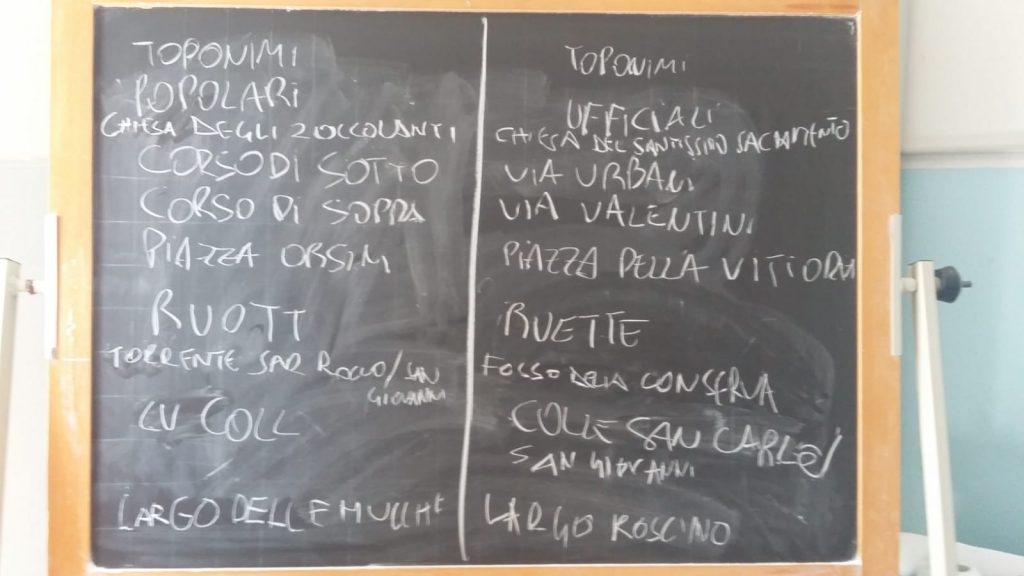 TOPONIMI
POPOLARI
CHIESA DEGLI ZOCCOLANTI
CORSO DI SOTTO
CORSO DI SOPRA
PIAZZA ORSINI
RUOTT
TORRENTE SAN ROCCO/SAN
GIOVANNI
LU COLL
LARGO DELLE MUCCHE
TOPONIMI
UFFICIALI
CHIESA DEL SANTISSIMO SACRAMENTO
VIA URBANI
VIA VALENTINI
PIAZZA DELLA VITTORIA
RUETTE
FOSSO DELLA CONSERVA
COLLE SAN CARLO/
SAN GIOVANNI
LARGO ROSCINO